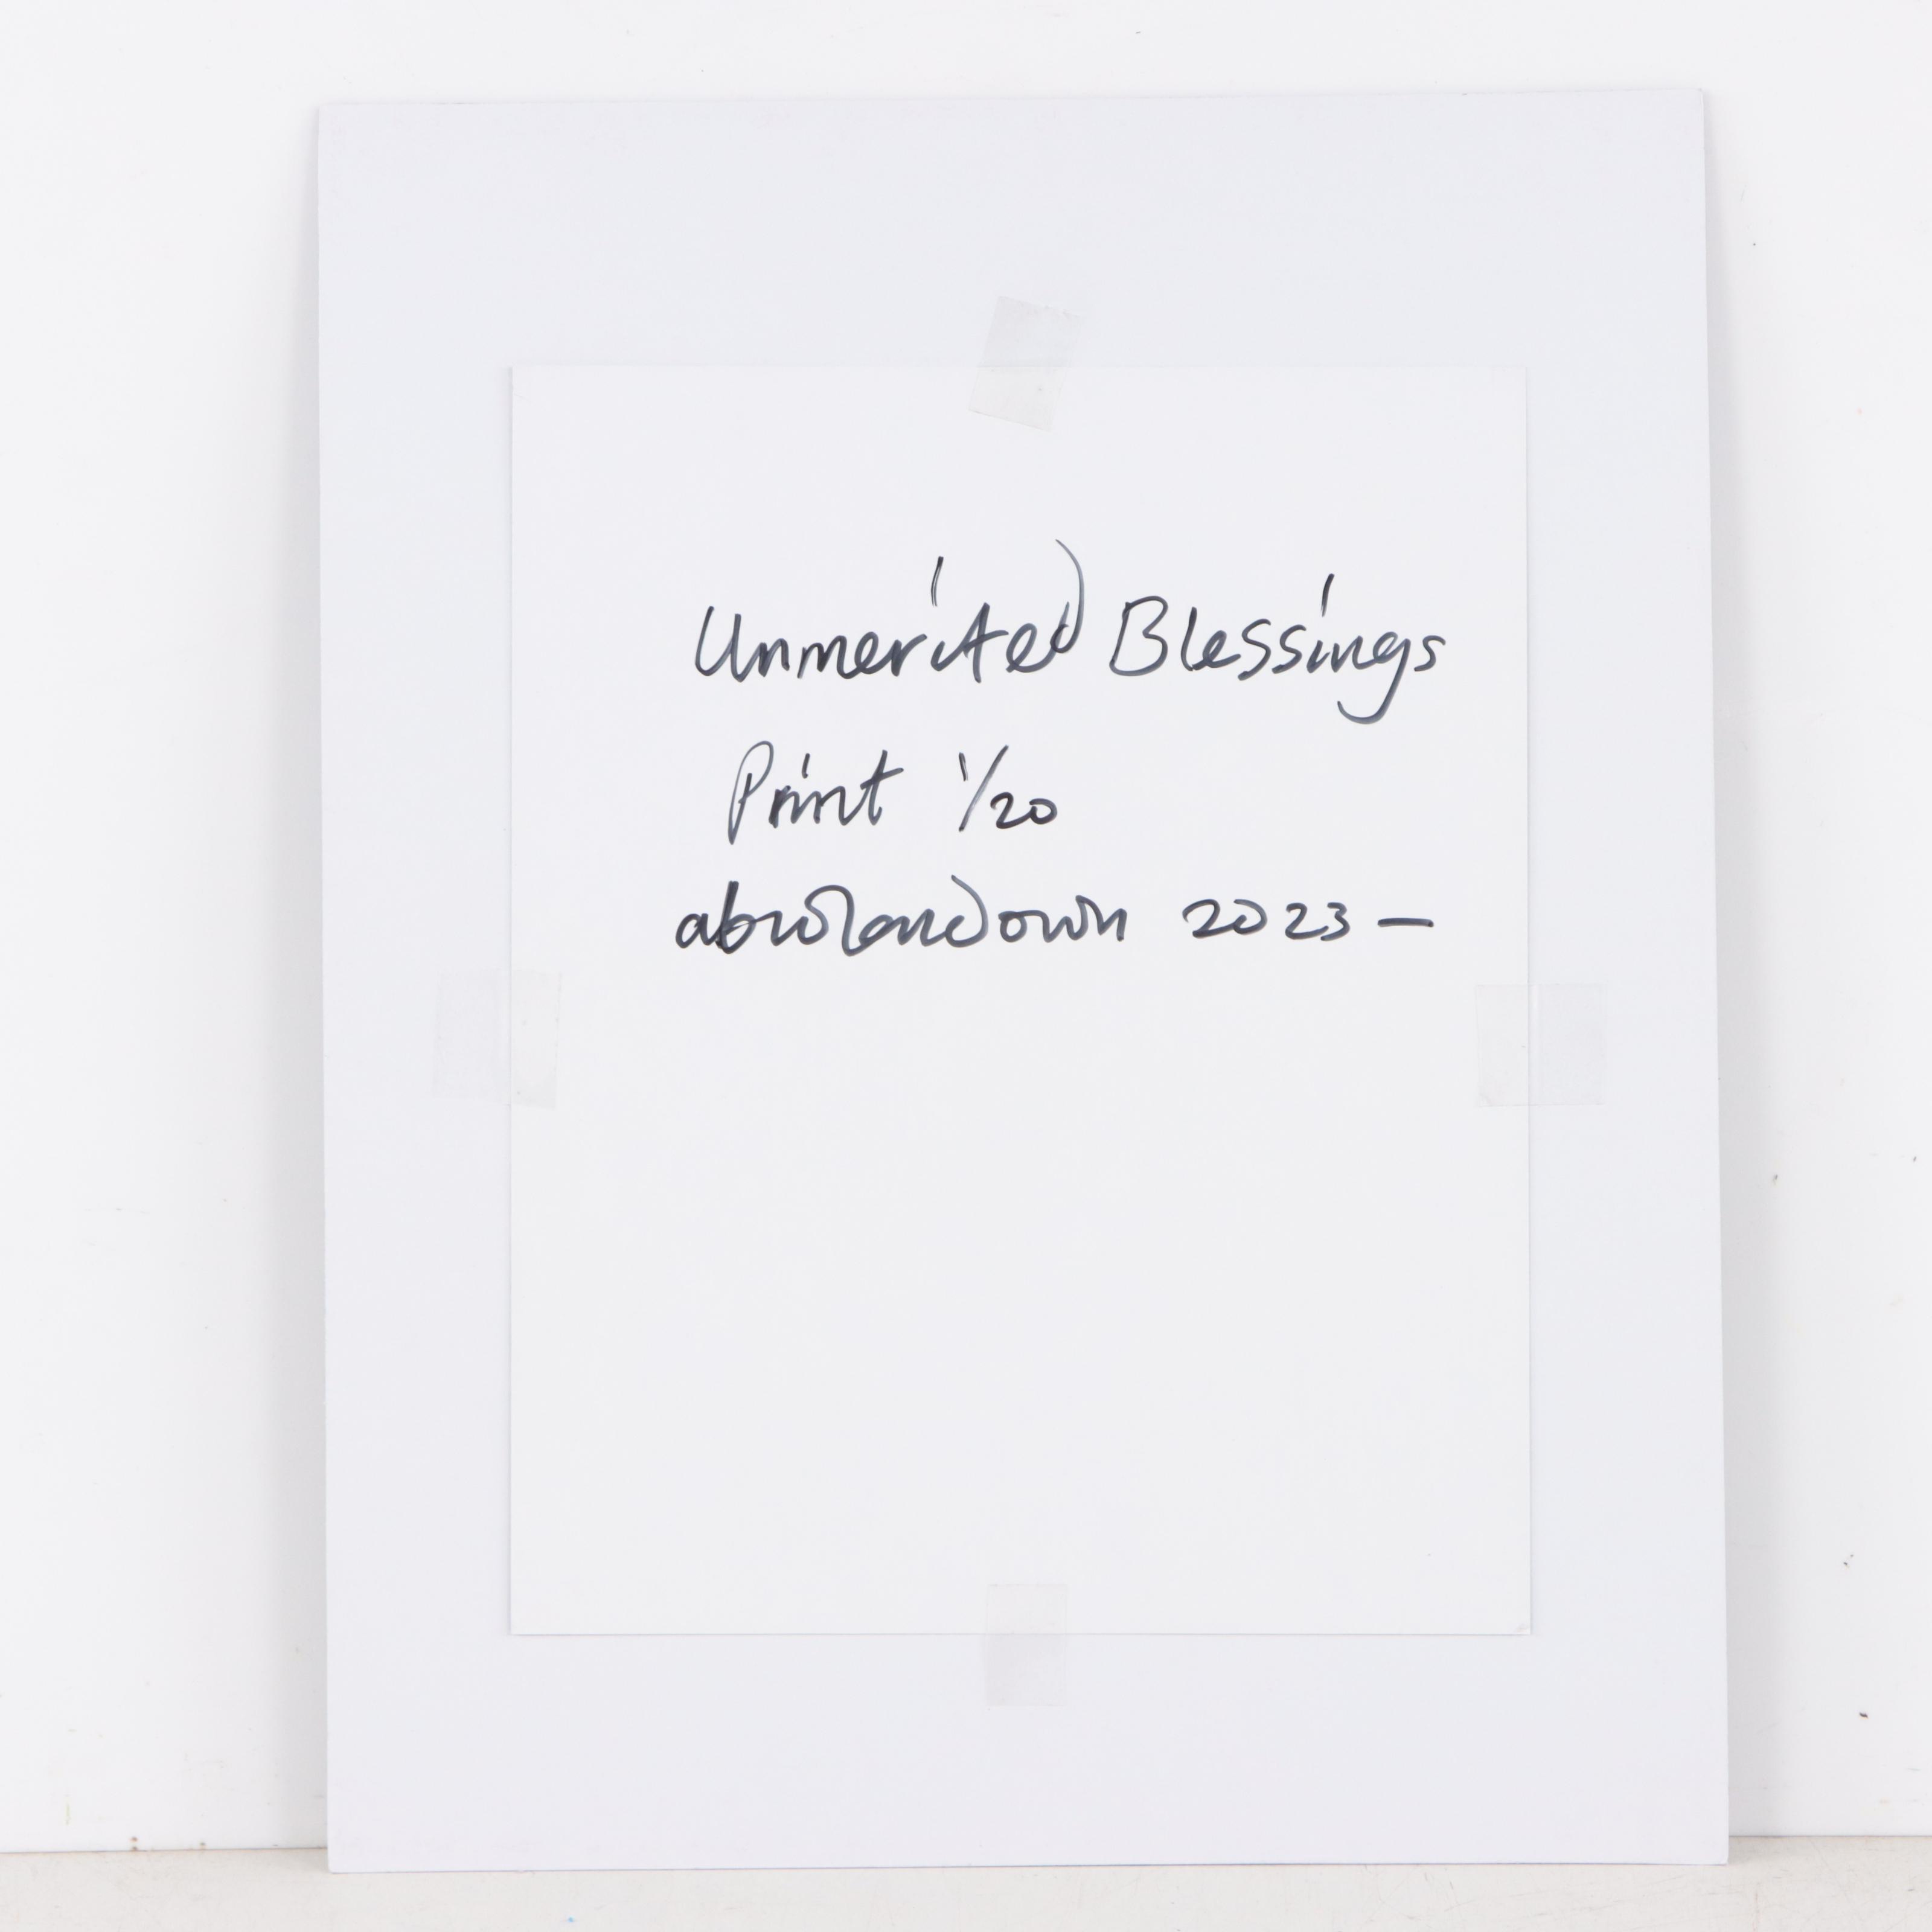 Unmerited Blessings
Print 1/20
2023 –